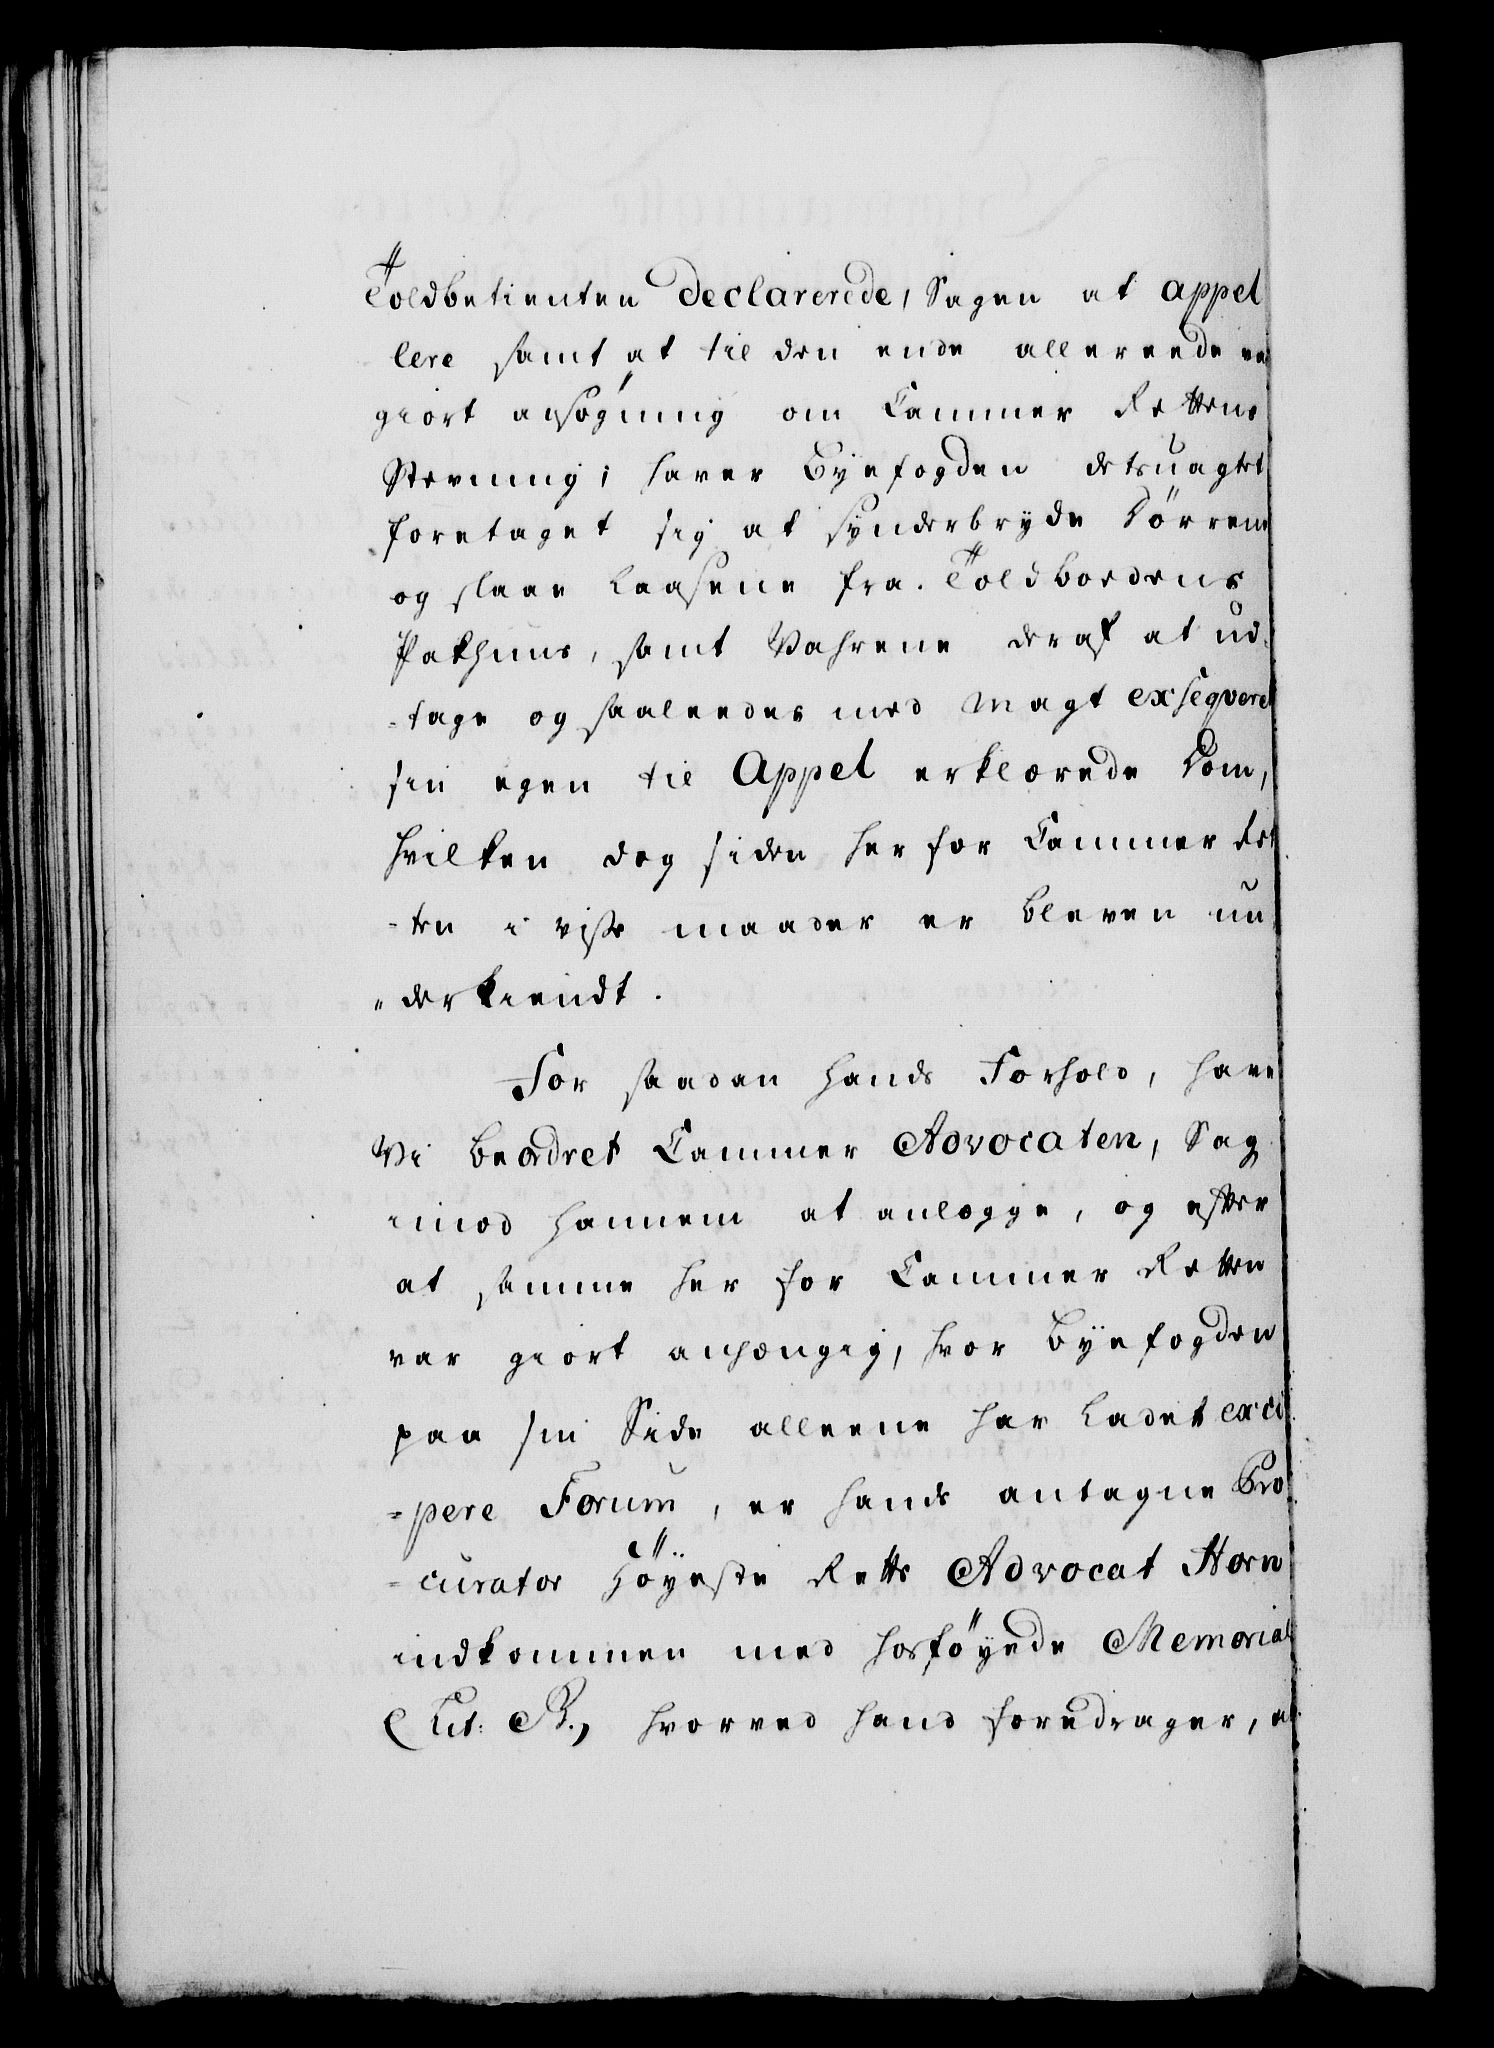 Toldbetienten Declarerede, Sagen at appel
lere samt at til den ende allereede
giort ansøgning om Cammer Rettens
Stevning; haver Byefogden detsuagtet
foretaget sig at synderbryde Dörrene
og slaae Laasene fra Toldboedens
Pakhuus, samt Vahrene deraf at ud-
-tage og saaleedes med Magt exseqveret
sin egen til Appel erklærede Dom,
hvilken dog siden her for Cammer Ret
-ten i visse maader er bleven un
"derkiendt.
For saadan hands Forhold, have
Vi beordret Cammer Advocaten, Sag
imod hannem at anlegge, og efter
at samme her for Cammer Retten
var giort anhængig, hvor Byefogden
paa sin Side alleene har Ladet exci
=pere Forum, er hands antagne Pro
=curator Höyeste Retts Advocat Horn
indkommen med hosföyede Memorial
(Lit: B.) hvorved hand foredrager, at